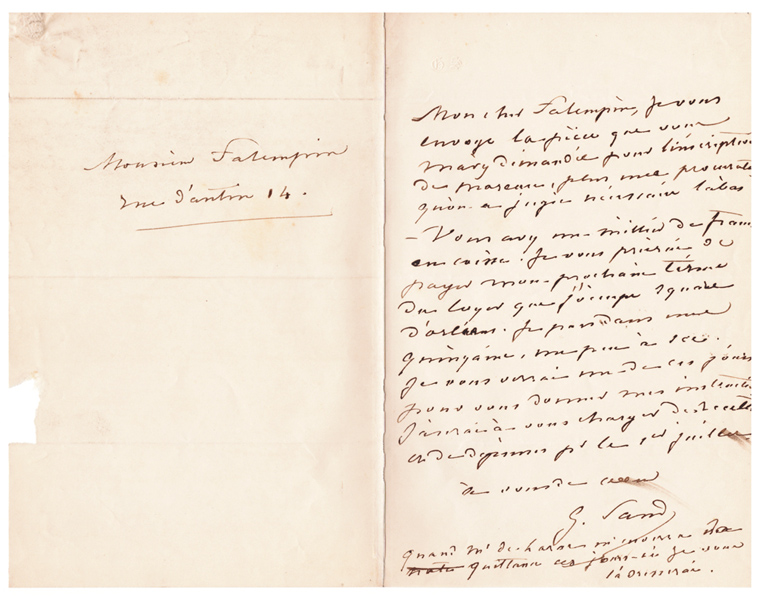 Monsieur Falempin
rue d'antin 14.
Mon cher Falempin, je vous
envoye la pièce que vous
m'avez demandée pour l'inscription
de moreau, plus une procurat
qu'on a jugée nécessaire là bas
- Vous avez un millier de francs
en caisse. Je vous prierai de
payer mon prochain terme
du loyer que j'occupe square
d'orléans. Je pars dans une
quinzaine, un peu à sec.
Je vous verrai un de ces jours
pour vous donner mes instructi
J'aurai à vous charger de recettes
et de dépenses pr le 1er juillet
à vous de cœur
G. Sand
quand Mr de m'enverra
quittance ces jours-ci je vous
l'adresserai.